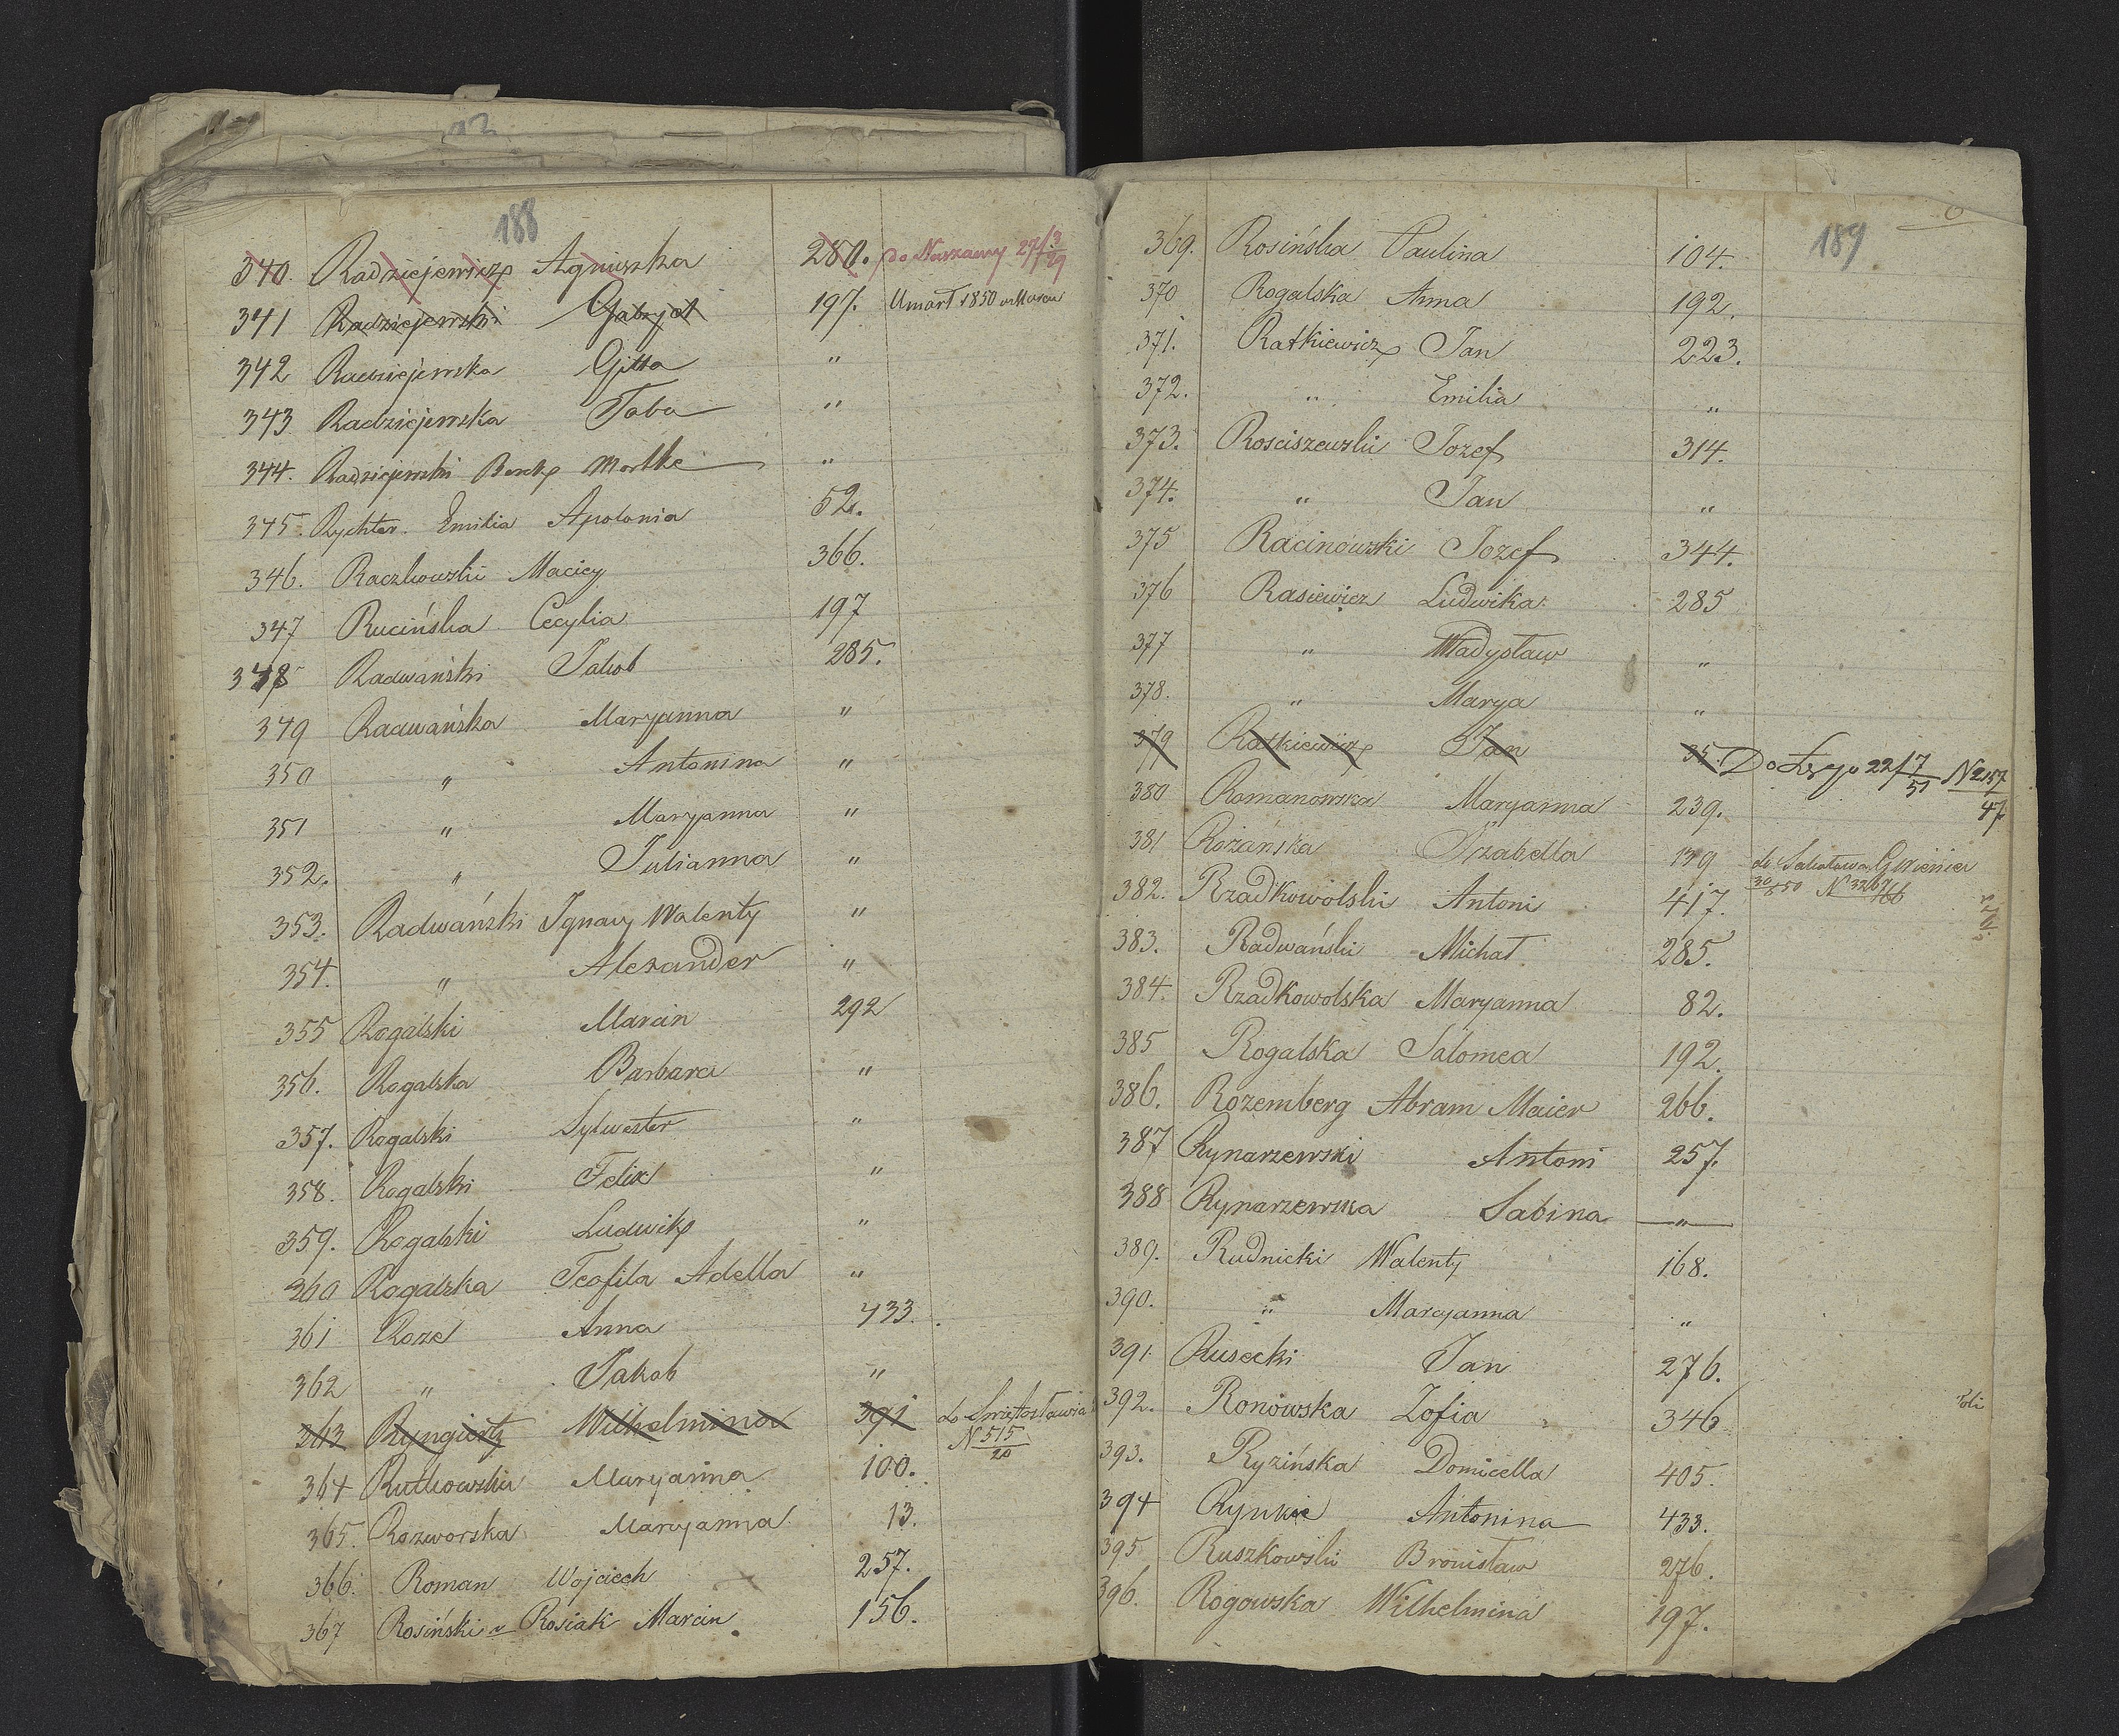 188
340. Radziejewicz Agnuszka 280. do Warszawy 27/3 29
341 Radziejewski Gabryel 197. Umarł 1850 w Marcu
342 Radziejewska Gitta "
343 Radziejewska Taba "
344. Radziejewski Berek Mortke "
345. Rychter. Emilia Apolonia 52.
346. Raczkowski Maciey 366.
347 Rucińska Cecylia 197
348 Radwański Jakob 285.
349 Radwańska Maryanna "
350 " Antonina "
351 " Maryanna "
352. " Julianna "
353. Radwański Ignacy Walenty "
354. " Alexander "
355 Rogalski Marcin 292
356. Rogalska Barbara "
357. Rogalski Sylwester "
358. Rogalski Felix "
359. Rogalski Ludwik "
360 Rogalska Teofila Adella "
361 Roze Anna 433.
362 " Jakob "
363 Ryngiertz Wilhelmina 391 do Świętosławia
N 515
20
364 Rutkowska Maryanna 100.
365. Rozworska Maryanna 13.
366. Roman Wojciech 257.
367 Rosiński v Rosiak Marcin 156.
189
369. Rosińska Paulina 104.
370 Rogalska Anna 192.
371. Ratkiewicz Jan 223.
372. " Emilia "
373. Rosciszewski Jozef 314.
374. " Jan "
375 Racinowski Jozef 344.
376 Rasiewicz Ludwika 285
377 " Władysław "
378. " Marya "
379 Ratkiewicz Jan 35. Do 22/7 51 N 2157
47
380 Romanowska Maryanna 239.
381 Rożanska Izabella 139 do
30/850 N 3267/166
382. Rzadkowolski Antoni 417.
383. Radwański Michał 285.
384. Rzadkowolska Maryanna 82.
385 Rogalska Salomea 192.
386. Rozemberg Abram Maier 266.
387 Rynarzewski Antoni 257.
388 Rynarzewska Sabina "
389. Rudnicki Walenty 168.
390. " Maryanna "
391. Rusecki Jan 276.
392. Ronowska Zofia 346
393. Ryzińska Domicella 405.
394 Rynkie Antonina 433.
395. Ruszkowski Bronisław 276.
396. Rogowska Wilhelmina 197.